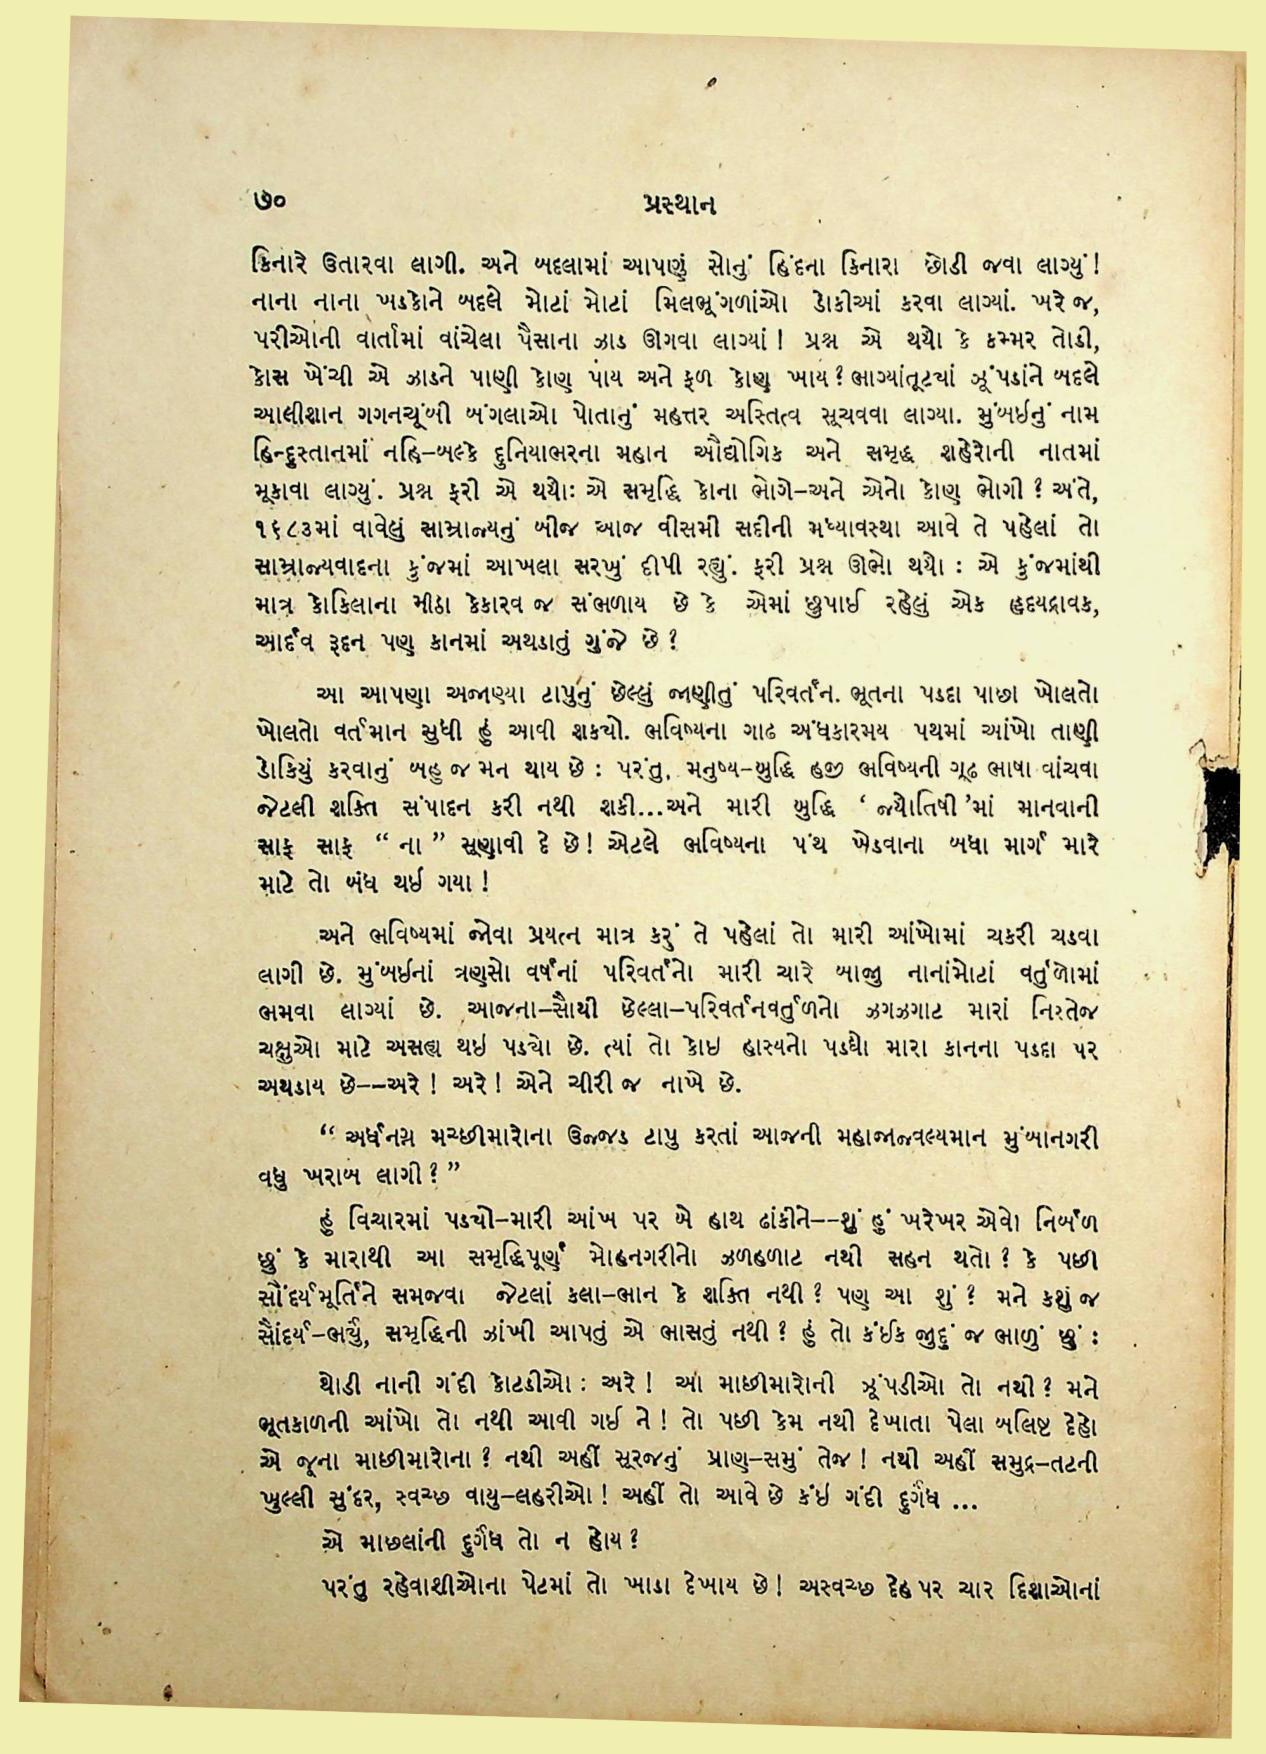 ૭૦ પ્રસ્થાન
કિનારે ઉતારવા લાગી. અને બદલામાં આપણું સોનું હિંદના કિનારા છોડી જવા લાગ્યું!
નાના નાના ખડકોને બદલે મોટાં મોટાં મિલભૂંગળાંઓ ડોકીઆં કરવા લાગ્યાં. ખરે જ,
પરીઓની વાર્તામાં વાંચેલા પૈસાના ઝાડ ઊગવા લાગ્યાં! પ્રશ્ન એ થયો કે કમ્મર તોડી,
કોસ ખેંચી એ ઝાડને પાણી કોણ પાય અને ફળ કોણ ખાય? ભાગ્યાંતૂટ્યાં ઝૂંપડાંને બદલે
આલીશાન ગગનચૂંબી બંગલાઓ પોતાનું મહત્તર અસ્તિત્વ સૂચવવા લાગ્યા. મુંબઈનું નામ
હિન્દુસ્તાનમાં નહિ–બલ્કે દુનિયાભરના મહાન ઔદ્યોગિક અને સમૃદ્ધ શહેરોની નાતમાં
મૂકાવા લાગ્યું. પ્રશ્ન ફરી એ થયોઃ એ સમૃદ્ધિ કોના ભોગે–અને એનો કોણ ભોગી? અંતે,
૧૬૮૩માં વાવેલું સામ્રાજ્યનું બીજ આજ વીસમી સદીની મધ્યાવસ્થા આવે તે પહેલાં તો
સામ્રાજ્યવાદના કુંજમાં આખલા સરખું દીપી રહ્યું. ફરી પ્રશ્ન ઊભો થયો : એ કુંજમાંથી
માત્ર કોકિલાના મીઠા કેકારવ જ સંભળાય છે કે એમાં છુપાઈ રહેલું એક હૃદયદ્રાવક,
આર્દવ રૂદન પણ કાનમાં અથડાતું ગુંજે છે?
આ આપણા અજાણ્યા ટાપુનું છેલ્લું જાણીતું પરિવર્તન. ભૂતના પડદા પાછા ખોલતો
ખોલતો વર્તમાન સુધી હું આવી શક્યો. ભવિષ્યના ગાઢ અંધકારમય પથમાં આંખો તાણી
ડોકિયું કરવાનું બહુ જ મન થાય છે : પરંતુ, મનુષ્ય–બુદ્ધિ હજી ભવિષ્યની ગૂઢ ભાષા વાંચવા
જેટલી શક્તિ સંપાદન કરી નથી શકી...અને મારી બુદ્ધિ ‘જ્યોતિષી’માં માનવાની
સાફ સાફ “ના” સૂણાવી દે છે! એટલે ભવિષ્યના પંથ ખેડવાના બધા માર્ગ મારે
માટે તો બંધ થઈ ગયા!
અને ભવિષ્યમાં જોવા પ્રયત્ન માત્ર કરું તે પહેલાં તો મારી આંખોમાં ચકરી ચડવા
લાગી છે. મુંબઈનાં ત્રણસો વર્ષનાં પરિવર્તનો મારી ચારે બાજુ નાનાંમોટાં વર્તુળોમાં
ભમવા લાગ્યાં છે. આજના–સૌથી છેલ્લા–પરિવર્તનવર્તુળનો ઝગઝગાટ મારાં નિસ્તેજ
ચક્ષુઓ માટે અસહ્ય થઇ પડ્યો છે. ત્યાં તો કોઇ હાસ્યનો પડઘો મારા કાનના પડદા પર
અથડાય છે––અરે! અરે! એને ચીરી જ નાખે છે.
“અર્ધનગ્ન મચ્છીમારોના ઉજ્જડ ટાપુ કરતાં આજની મહાજાજ્વલ્યમાન મુંબાનગરી
વધુ ખરાબ લાગી?”
હું વિચારમાં પડ્યો–મારી આંખ પર બે હાથ ઢાંકીને––શું હું ખરેખર એવો નિર્બળ
છું કે મારાથી આ સમૃદ્ધિપૂર્ણ મોહનગરીનો ઝળહળાટ નથી સહન થતો? કે પછી
સૌંદર્યમૂર્તિને સમજવા જેટલાં કલા–ભાન કે શક્તિ નથી? પણ આ શું? મને કશું જ
સૌંદર્ય–ભર્યું, સમૃદ્ધિની ઝાંખી આપતું એ ભાસતું નથી? હું તો કંઈક જુદું જ ભાળું છું :
થોડી નાની ગંદી કોટડીઓ : અરે! આ માછીમારોની ઝૂંપડીઓ તો નથી? મને
ભૂતકાળની આંખો તો નથી આવી ગઈ ને! તો પછી કેમ નથી દેખાતા પેલા બલિષ્ટ દેહો
એ જૂના માછીમારોના? નથી અહીં સૂરજનું પ્રાણ–સમું તેજ! નથી અહીં સમુદ્ર–તટની
ખુલ્લી સુંદર, સ્વચ્છ વાયુ–લહરીઓ! અહીં તો આવે છે કંઇ ગંદી દુર્ગંધ ...
એ માછલાંની દુર્ગંધ તો ન હોય?
પરંતુ રહેવાશીઓના પેટમાં તો ખાડા દેખાય છે! અસ્વચ્છ દેહ પર ચાર દિશાઓનાં